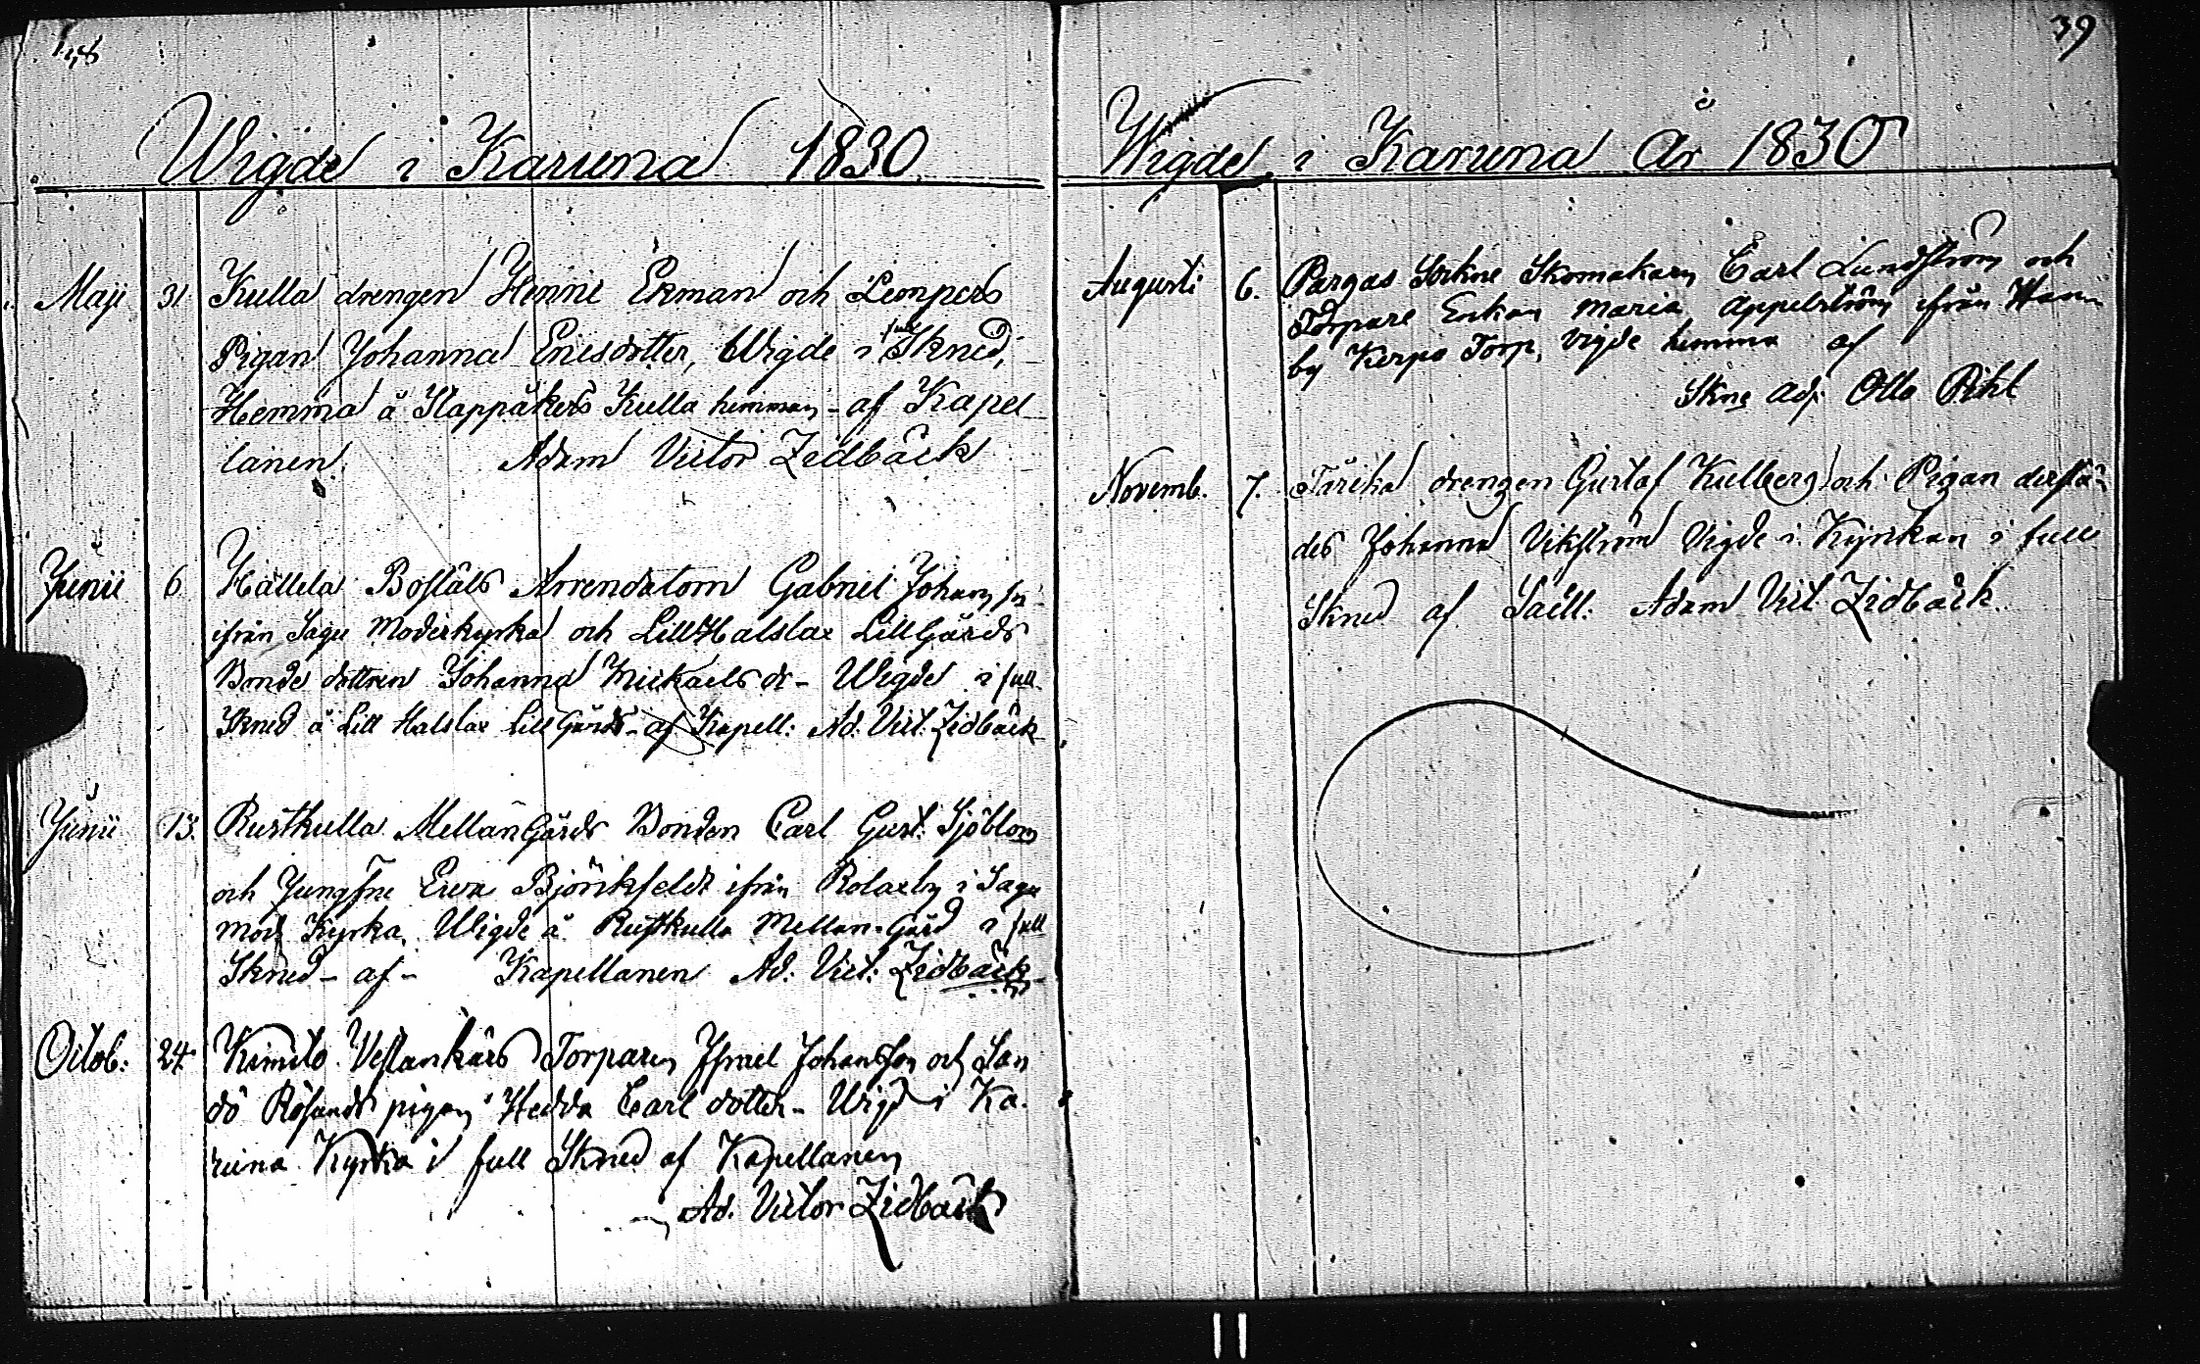 38
Wigde i Karuna 1830
Maji 31 Kulla drengen Henric Ekman och Lempers
Pigan Johanna Ericsdotter, Wigde i full Skrud,
Hemma å Klappåkers Kulla hemman - af Kapel
lanen. Adam Victor Zidbäck
Junii 6 Hallela Boställs Arrendatorn Gabriel Johans sn
ifrån Sagu Moderkyrka och Lill Halslax Lillgårds
Bonde dottren Johanna Mickaels dr - Wigde i full
Skrud å Lill Halslax Lillgårds - af Kapell: Ad: Vict: Zidbäck
Junii 13. Rustkulla Mellangårds Bonden Carl Gust: Sjöblom
och Jungfru Eva Björkfeldt ifrån Rolaxby i Sagu
mod Kyrka, Wigde å Rustkulla Mellan-Gård i full
Skrud - af - Kapellanen Ad: Vict: Zidbäck
Octob: 24 Kimito Vestankärs Torparen Israel Johansson och San
dö pigan Hedda Carl dotter - Wigd i Ka-
runa Kyrka i full Skrud af Kapellanen
Ad. Victor Zidbäck
39
Wigde i Karuna År 1830
Augusti 6. Pargas Sockne Skomakarn Carl Lundström och
Torpare Enkan Maria Appelström ifrån Ham-
by Kerpo Torp, vigde hemma af
Skne Adj: Otto Pihl
Novemb. 7. drengen Gustaf Kullberg och Pigan derstä-
des Johanna Vikström Vigde i Kyrkan i full
Skrud af Adam Vict Zidbäck.